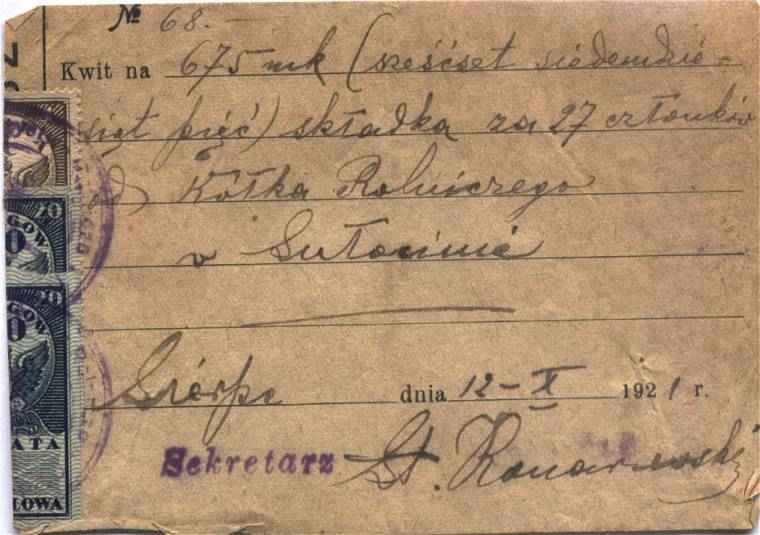 № 68.-
Kwit na 675 mk (sześćset siedemdzie-
siąt pięć) składka za 27 członków
od Kółka Rolniczego
w Sutocinie
Sierpc dnia 12-X 1921 r.
Sekretarz St.
20
GOW
0
20
GOW
0
ATA
ŁOWA